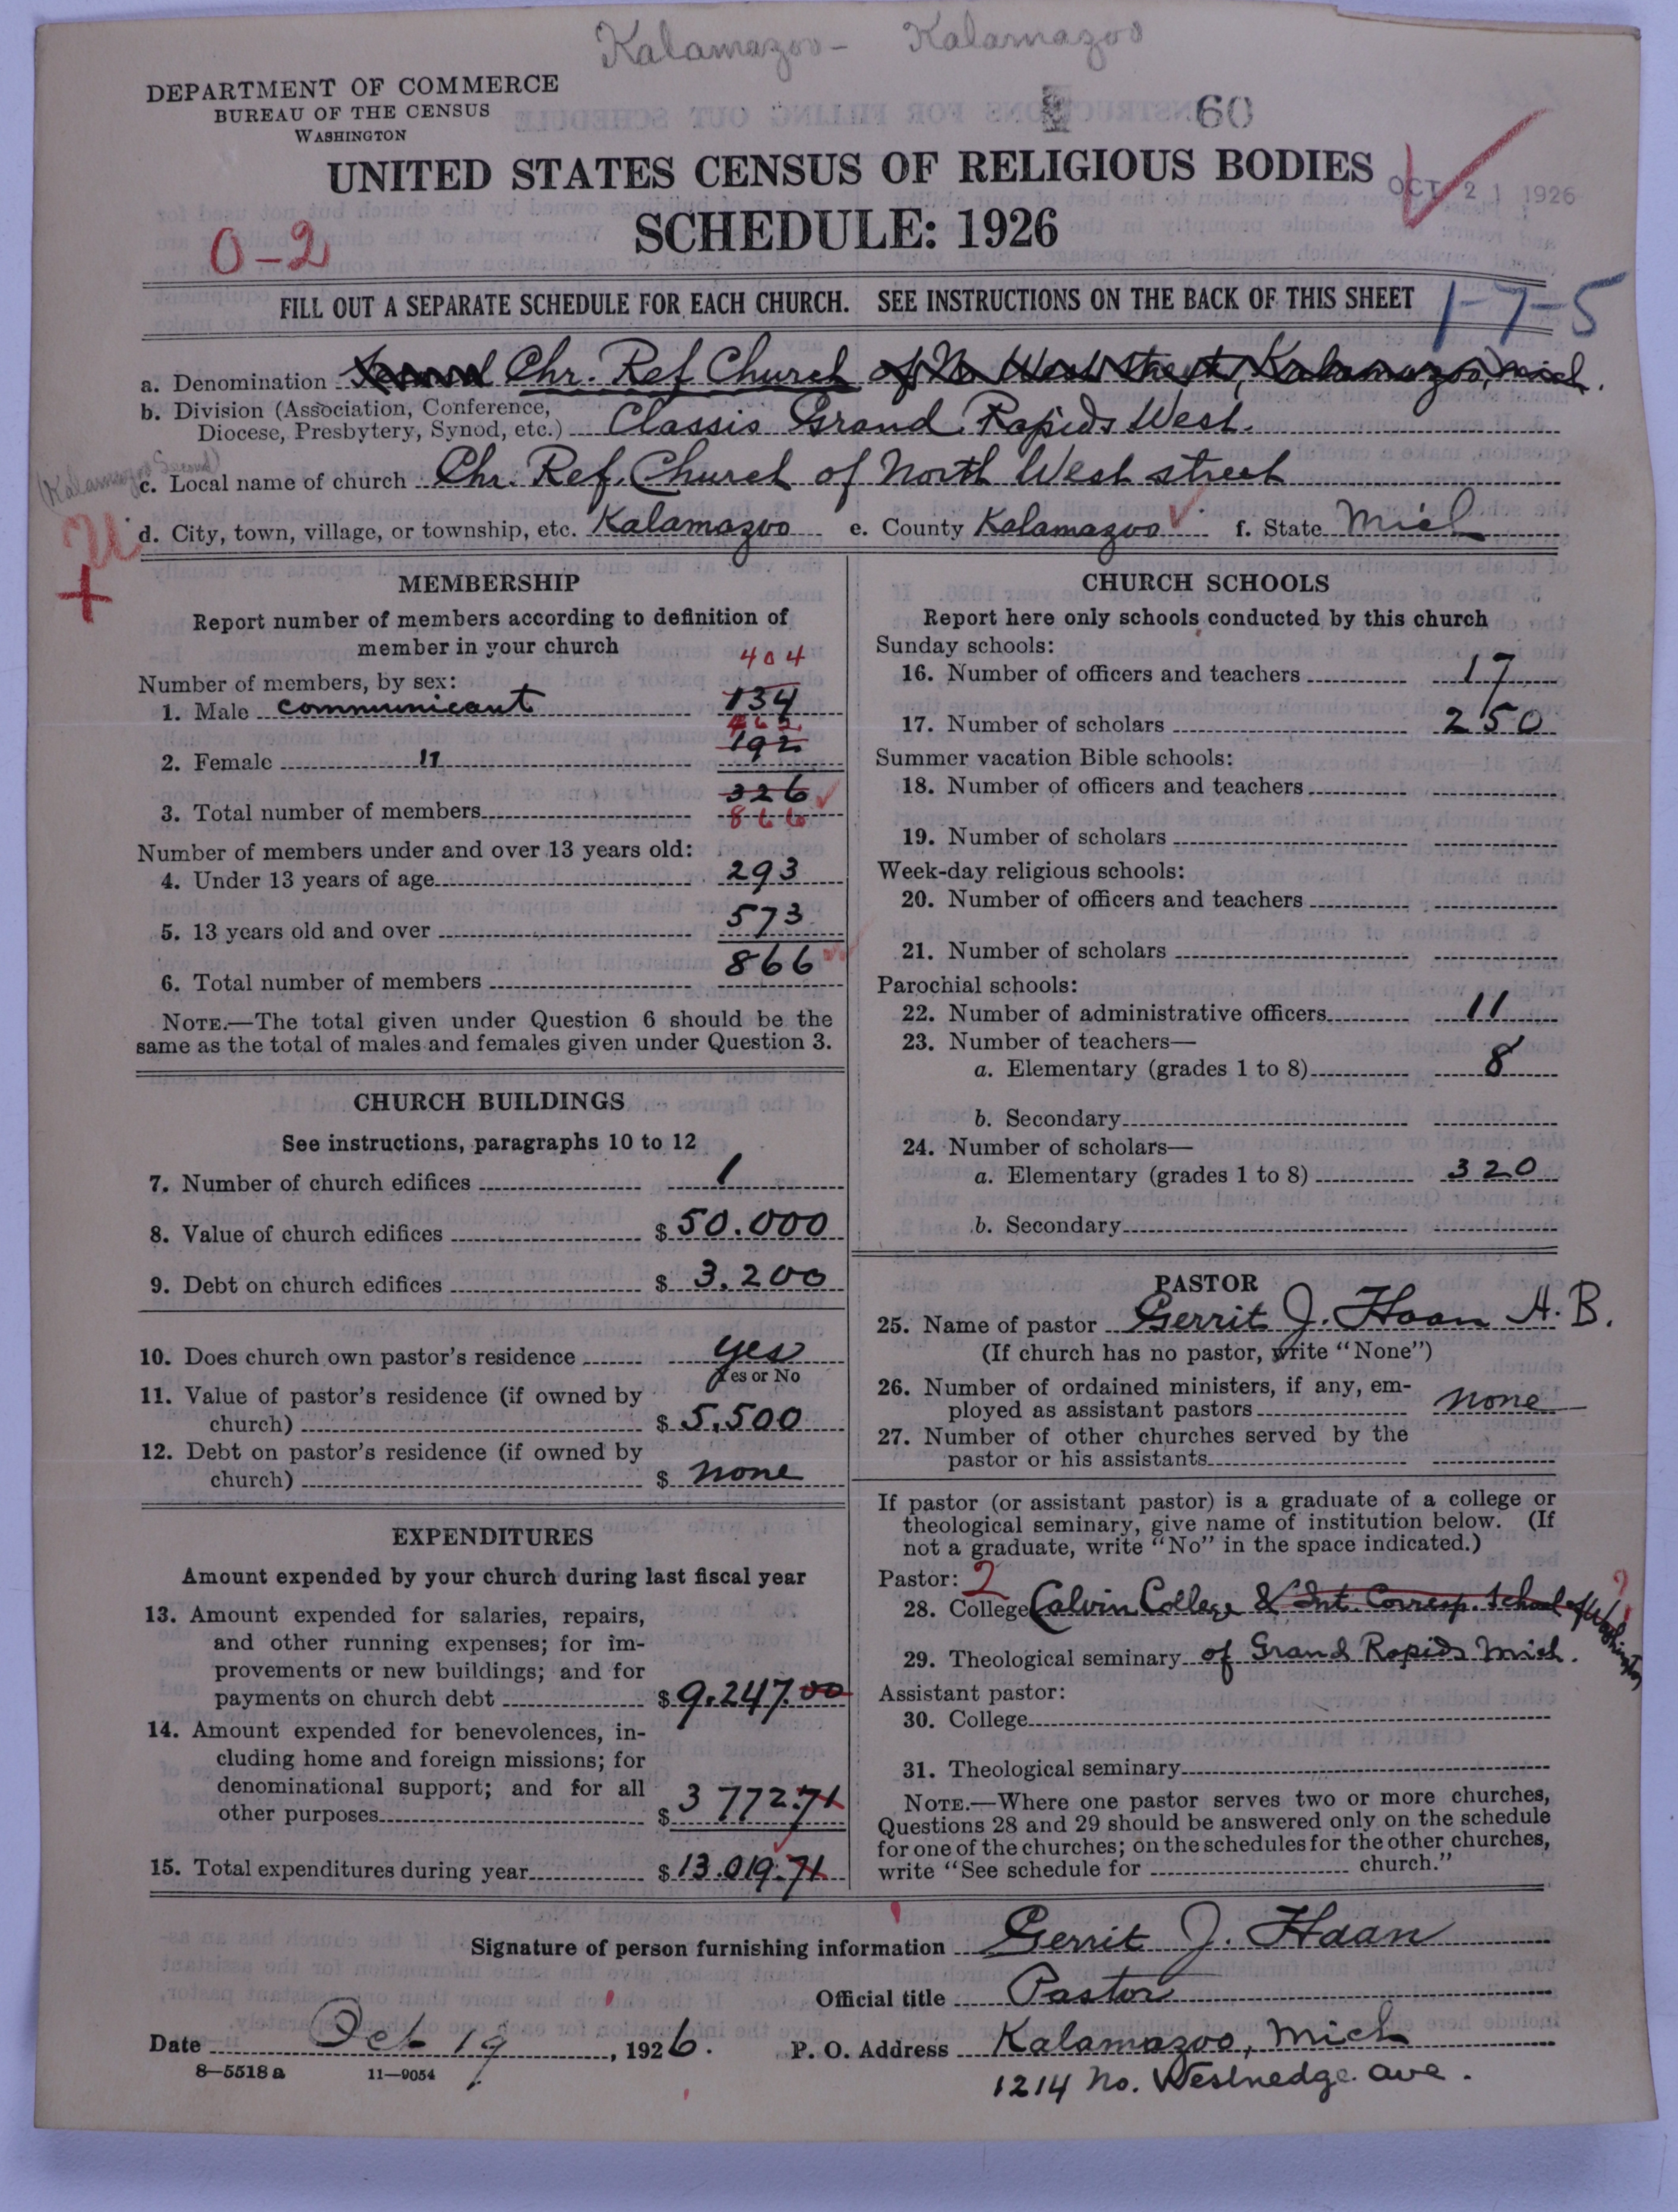 Kalamazoo - Kalamazoo
DEPARTMENT OF COMMERCE
BUREAU OF THE CENSUS
WASHINGTON
60
UNITED STATES CENSUS OF RELIGIOUS BODIES
OCT 21 1926
SCHEDULE: 1926
0-2
FILL OUT A SEPARATE SCHEDULE FOR EACH CHURCH. SEE INSTRUCTIONS ON THE BACK OF THIS SHEET
1-7-5
a. Denomination Second Chr. Ref Church of No West street, Kalamazoo, Mich.
b. Division (Association, Conference,
Diocese, Presbytery, Synod, etc.) Classis Grand Rapids West.
(Kalamazoo Second)
c. Local name of church Chr. Ref. Church of North West street
d. City, town, village, or township, etc. Kalamazoo e. County Kalamazoo f. State Mich
MEMBERSHIP
Report number of members according to definition of
member in your church
404
Number of members, by sex:
1. Male communicant 134
462
2. Female " 192
3. Total number of members 326
866
Number of members under and over 13 years old:
4. Under 13 years of age 293
5. 13 years old and over 573
6. Total number of members 866
NOTE.—The total given under Question 6 should be the
same as the total of males and females given under Question 3.
CHURCH BUILDINGS
See instructions, paragraphs 10 to 12
7. Number of church edifices 1
8. Value of church edifices $ 50.000
9. Debt on church edifices $ 3.200
10. Does church own pastor's residence yes
Yes or No
11. Value of pastor's residence (if owned by
church) $ 5.500
12. Debt on pastor's residence (if owned by
church) $ none
EXPENDITURES
Amount expended by your church during last fiscal year
13. Amount expended for salaries, repairs,
and other running expenses; for im-
provements or new buildings; and for
payments on church debt $ 9.247.00
14. Amount expended for benevolences, in-
cluding home and foreign missions; for
denominational support; and for all
other purposes $ 3 772.71
15. Total expenditures during year $ 13.019.71
CHURCH SCHOOLS
Report here only schools conducted by this church
Sunday schools:
16. Number of officers and teachers 17
17. Number of scholars 250
Summer vacation Bible schools:
18. Number of officers and teachers
19. Number of scholars
Week-day religious schools:
20. Number of officers and teachers
21. Number of scholars
Parochial schools:
22. Number of administrative officers 11
23. Number of teachers—
a. Elementary (grades 1 to 8) 8
b. Secondary
24. Number of scholars—
a. Elementary (grades 1 to 8) 320
b. Secondary
PASTOR
25. Name of pastor Gerrit J. Haan A. B.
(If church has no pastor, write "None")
26. Number of ordained ministers, if any, em-
ployed as assistant pastors none
27. Number of other churches served by the
pastor or his assistants
If pastor (or assistant pastor) is a graduate of a college or
theological seminary, give name of institution below. (If
not a graduate, write "No" in the space indicated.)
Pastor: 2
28. College Calvin College & Int. Corresp. School of Washington
29. Theological seminary of Grand Rapids Mich.
Assistant pastor:
30. College
31. Theological seminary
NOTE.—Where one pastor serves two or more churches,
Questions 28 and 29 should be answered only on the schedule
for one of the churches; on the schedules for the other churches,
write "See schedule for church."
Signature of person furnishing information Gerrit J. Haan
Official title Pastor
Date Oct 19, 1926. P. O. Address Kalamazoo, Mich
8—5518a 11—9054
1214 No. Westnedge ave.